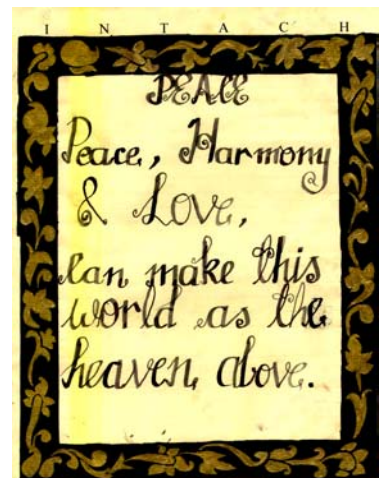 INTACH
PEACE
Peace, Harmony
& Love,
can make this
world as the
heaven above.